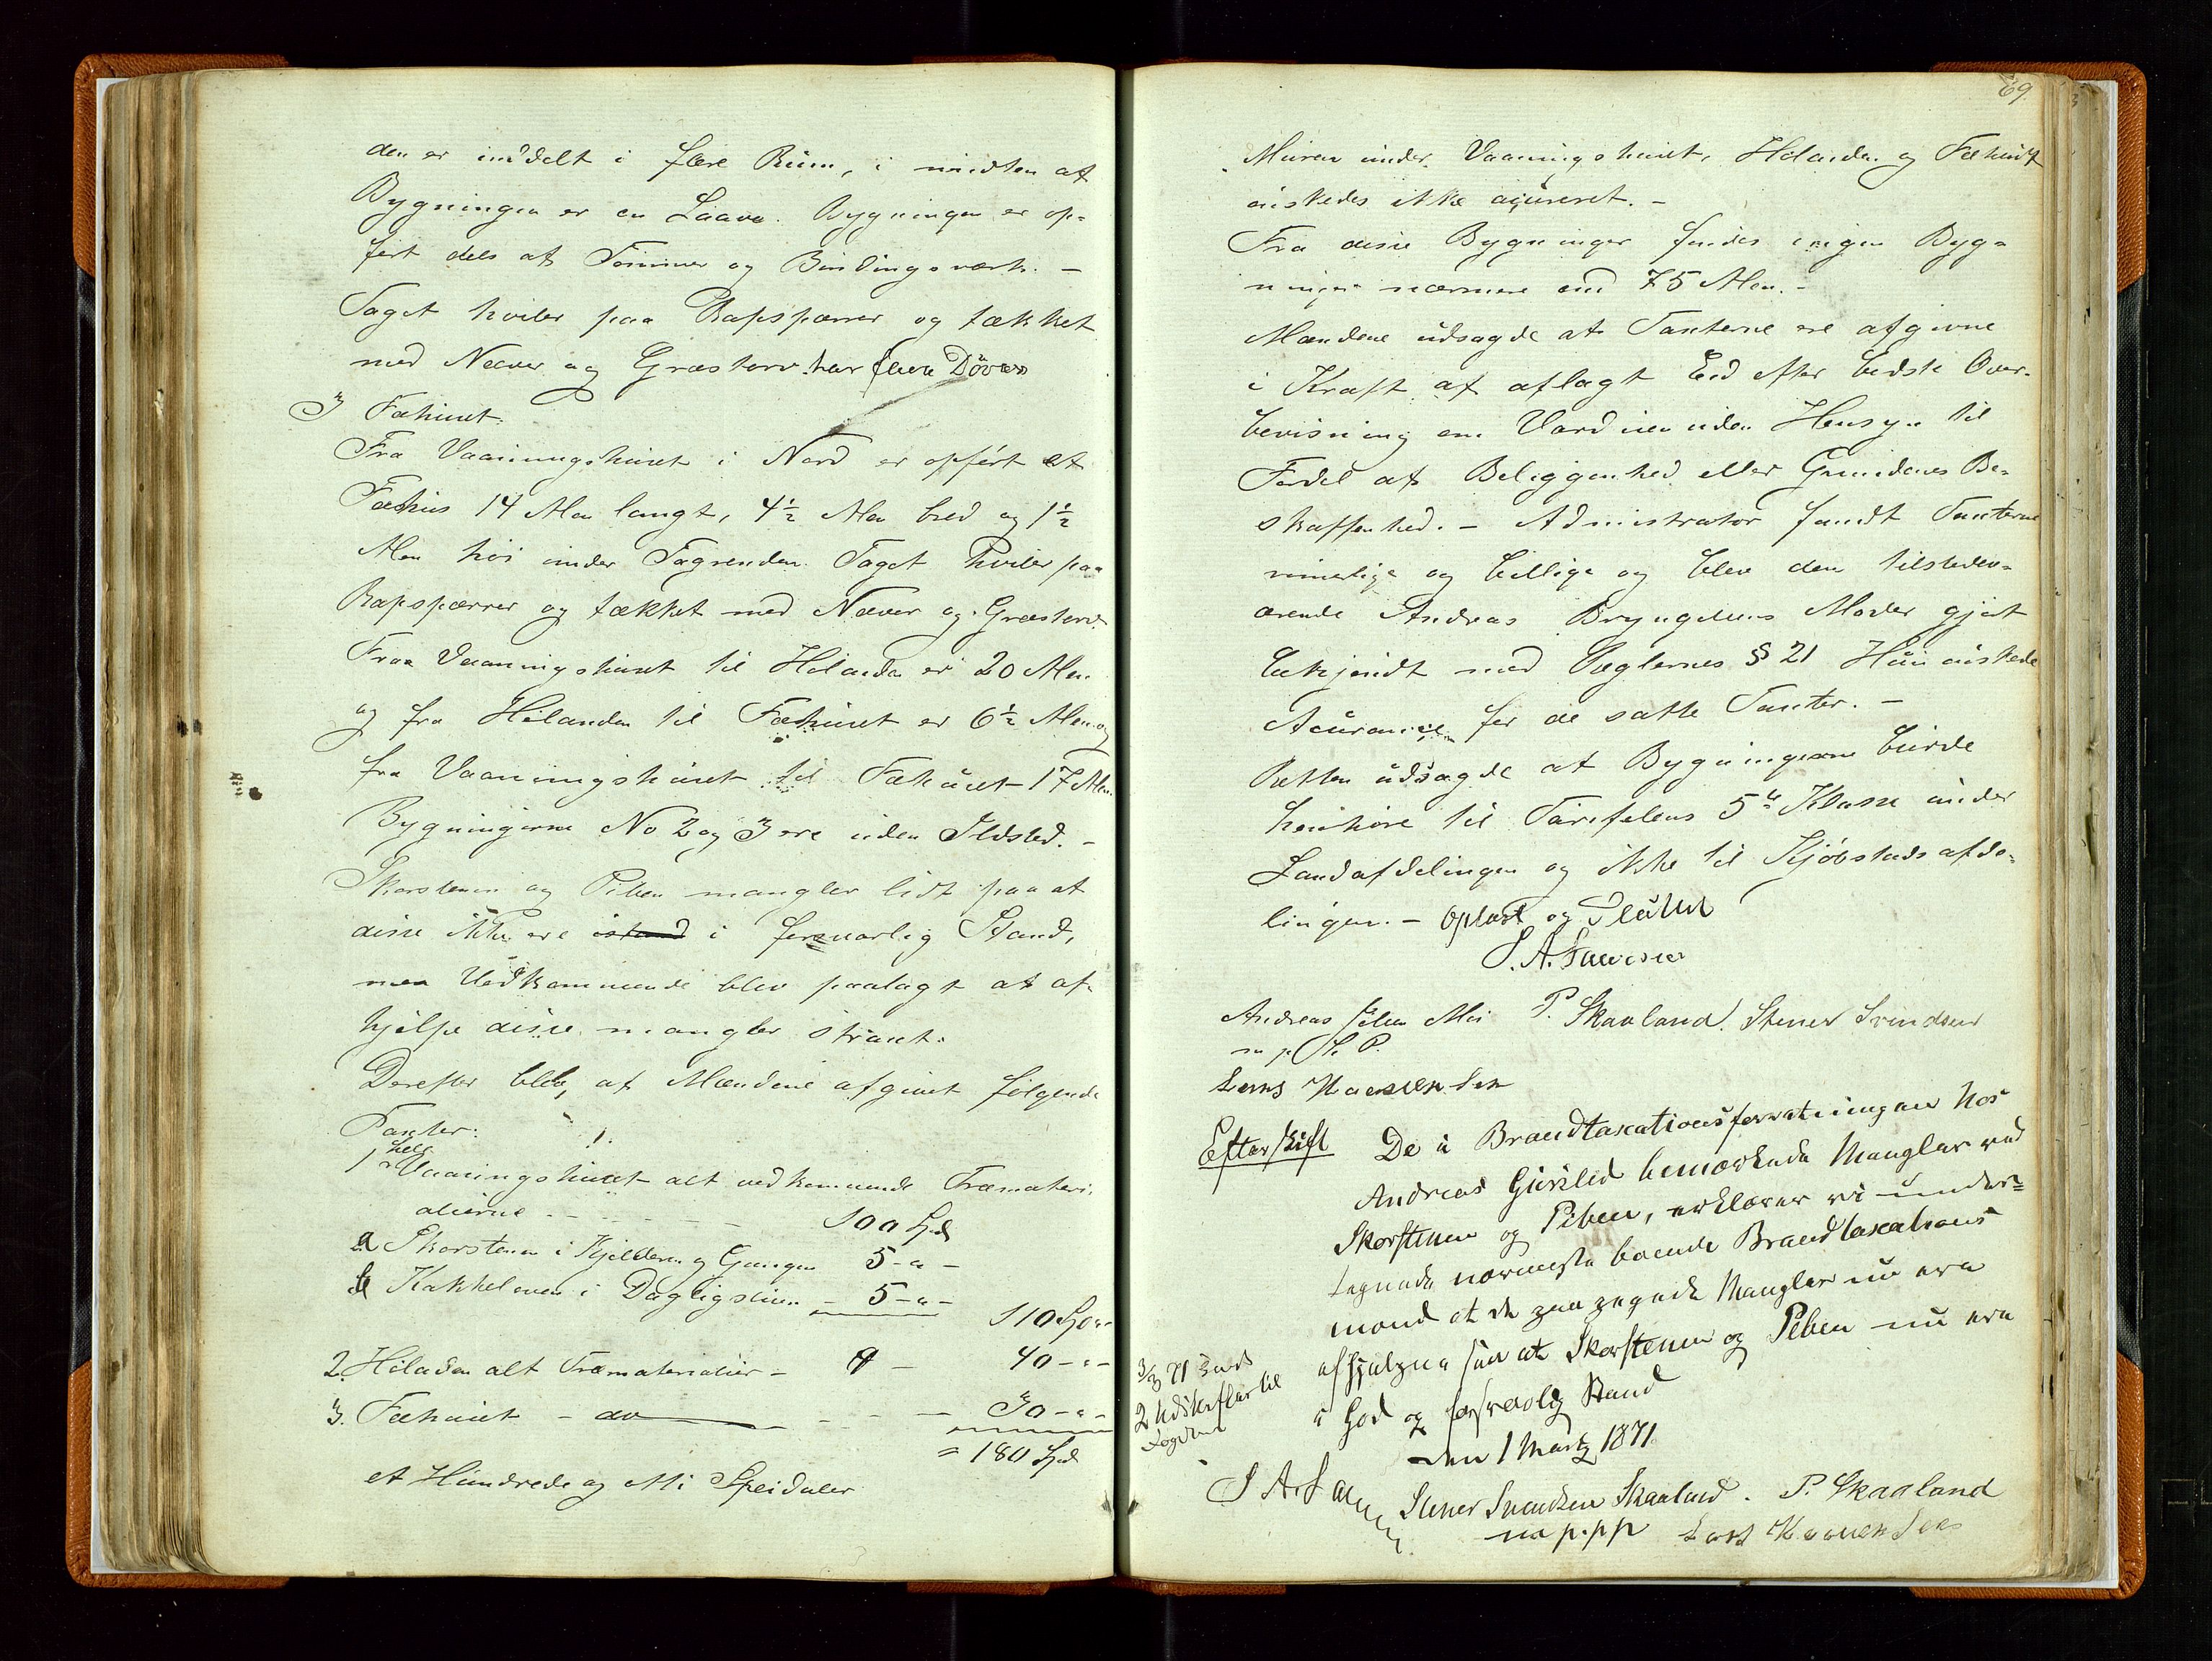 den er inddelt i flere Rum, i midten af
Bygningen er en Laave. Bygningen er op=
ført dels af Tømmer og Bindingsværk. —
Taget hviler paa Rapspærrer og tækket
med Næver og Græstorv. har flere Døvær
3 Fæhuset.
Fra Vaaningshuset i Nord er opført et
Fæhus 14 Alen langt, 4½ Alen bred og 1½
Alen høi under Tagrenden. Taget hviler paa
Rapspærrer og tækket med Næver og Græstorv.
Fra Vaaningshuset til Høladen er 20 Alen
og fra Høladen til Fæhuset er 6½ Alen og
fra Vaaningshuset til Fæhuset 17 Alen.
Bygningerne No 2 og 3 ere uden Ildsted. —
Skorstenen og Piben mangler lidt paa at
disse ikke ere istand i forsvarlig Stand,
men Vedkommende blev paalagt at af-
hjelpe disse mangler straxt.
Derefter blev af Mændene afgivet følgende
Taxter: 1.
1 hele Vaaningshuset alt vedkommende Træmateri-
alierne - - - - - 100 Spd
a Skorstenen i Kjelderen og Gangen 5 - " -
b Kakkelovnen i Dagligstuen - 5 - " -
110 Spd "
2. Høladen alt Træmaterialier - 9 - 40 - " -
3. Fæhuset - do - - - 30 - " -
= 180 Spd
et Hundrede og otti Speidaler
69.
Muren under Vaaningshuset, Høladen og Fæhuset
ønskedes ikke asureret. -
Fra disse Bygninger findes ingen Byg=
ninger nærmere end 75 Alen. -
Mændene udsagde at Taxterne ere afgivne
i Kraft af aflagt Eed efter bedste Over-
bevisning om Værdien uden Hensyn til
Fordel af Beliggenhed eller Grundenes Be=
skaffenhed. - Administrator fandt Taxterne
rimelige og billige og blev den tilstedev=
ærende Andreas Bryngelsens Moder gjort
bekjendt med Reglernes § 21 Hun ønskede
Asurance for de satte Taxter. -
Retten udsagde at Bygningerne burde
henhøre til Tariffelens 5te Klasse under
Landafdelingen og ikke til Kjøbstadsafde=
lingen. - Oplæst og Sluttet
S. A. Lauersen
Andreas P. Skaaland. Stener Svindsen
m p
Lars Haaversen
Efterskrift De i Brandtaxationsforretningen hos
Andreas Gursled bemærkede Mangler ved
Skorstenen og Piben, erklærer vi under=
tegnede nærmeste boende Brandtaxations
mænd at de paapegede Mangler nu ere
afhjulpne saa at Skorstenen og Piben nu ere
i God og forsvarlig Stand
den 1 Martz 1871.
3/3 71 Sendt
2 Udskrifter til
Fogden
S A. Lauersen Stener Svendsen Skaaland. P. Skaaland
m p.p.p Lars Haaversen